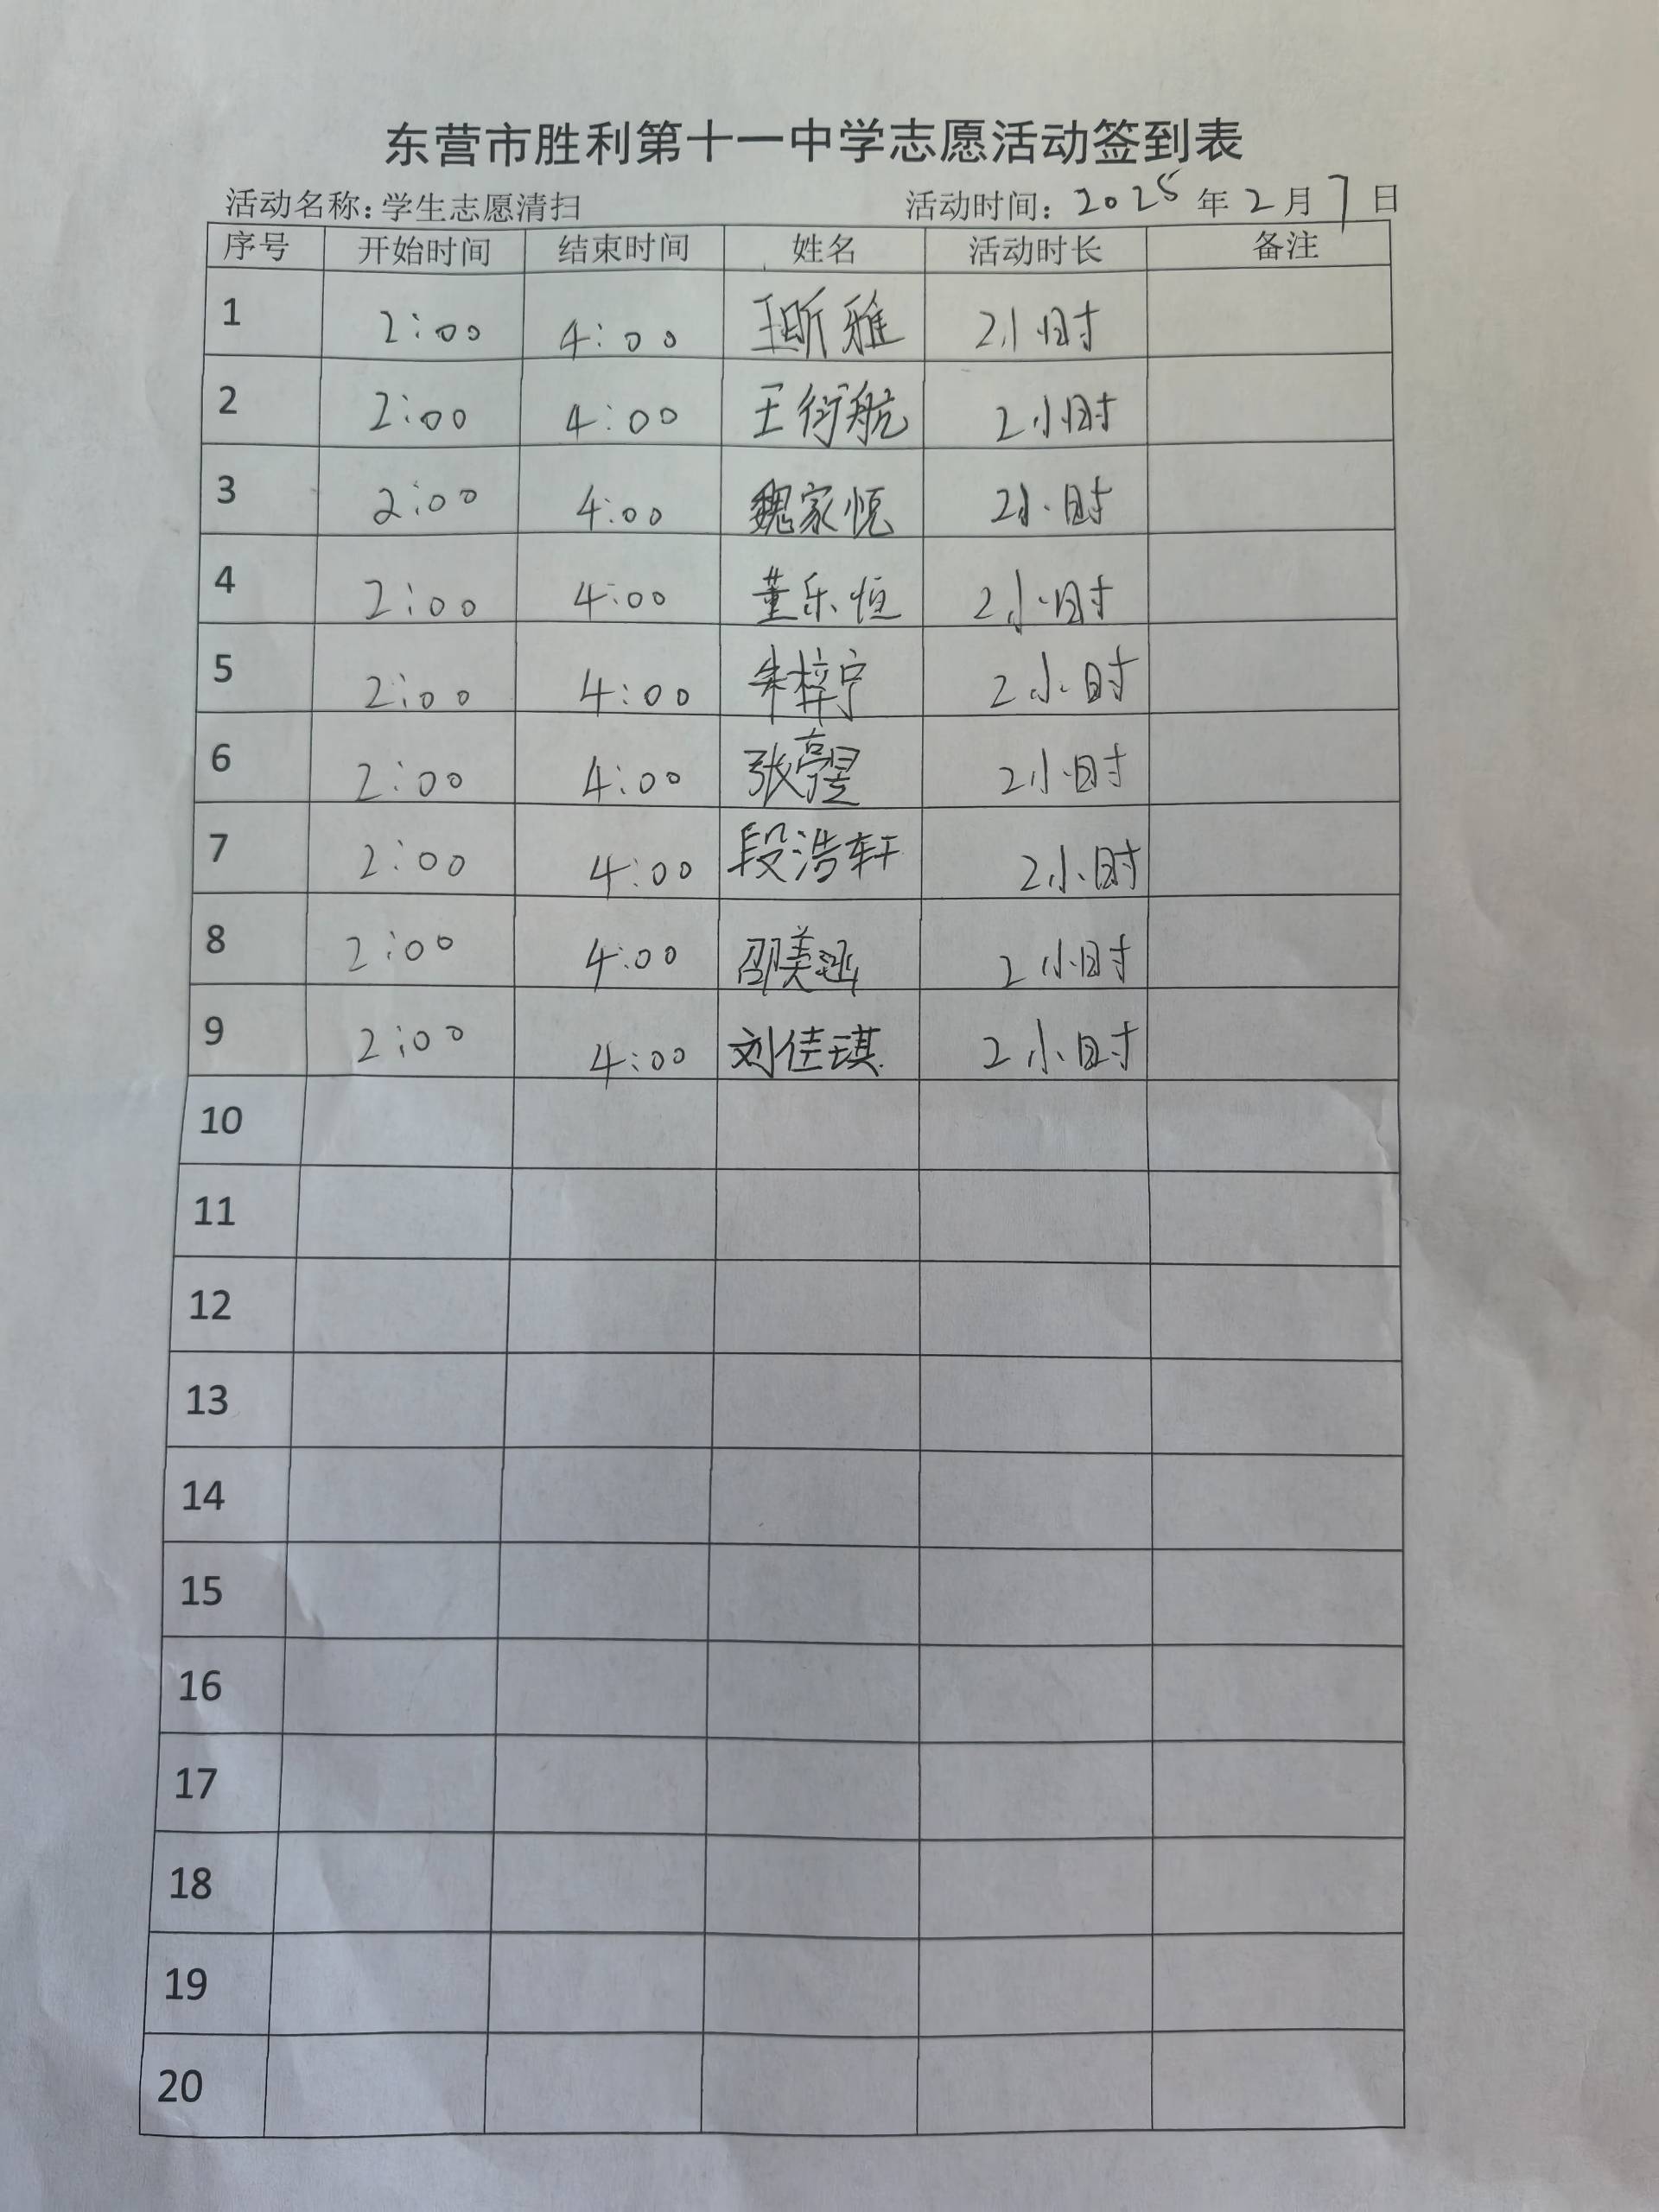 东营市胜利第十一中学志愿活动签到表
活动名称：学生志愿清扫 活动时间：2025年2月7日
序号 开始时间 结束时间 姓名 活动时长 备注
1 2:00 4:00 王昕雅 2小时
2 2:00 4:00 王衍航 2小时
3 2:00 4:00 魏家悦 2小时
4 2:00 4:00 董乐恒 2小时
5 2:00 4:00 朱梓宁 2小时
6 2:00 4:00 2小时
7 2:00 4:00 段浩轩 2小时
8 2:00 4:00 2小时
9 2:00 4:00 刘佳琪 2小时
10
11
12
13
14
15
16
17
18
19
20